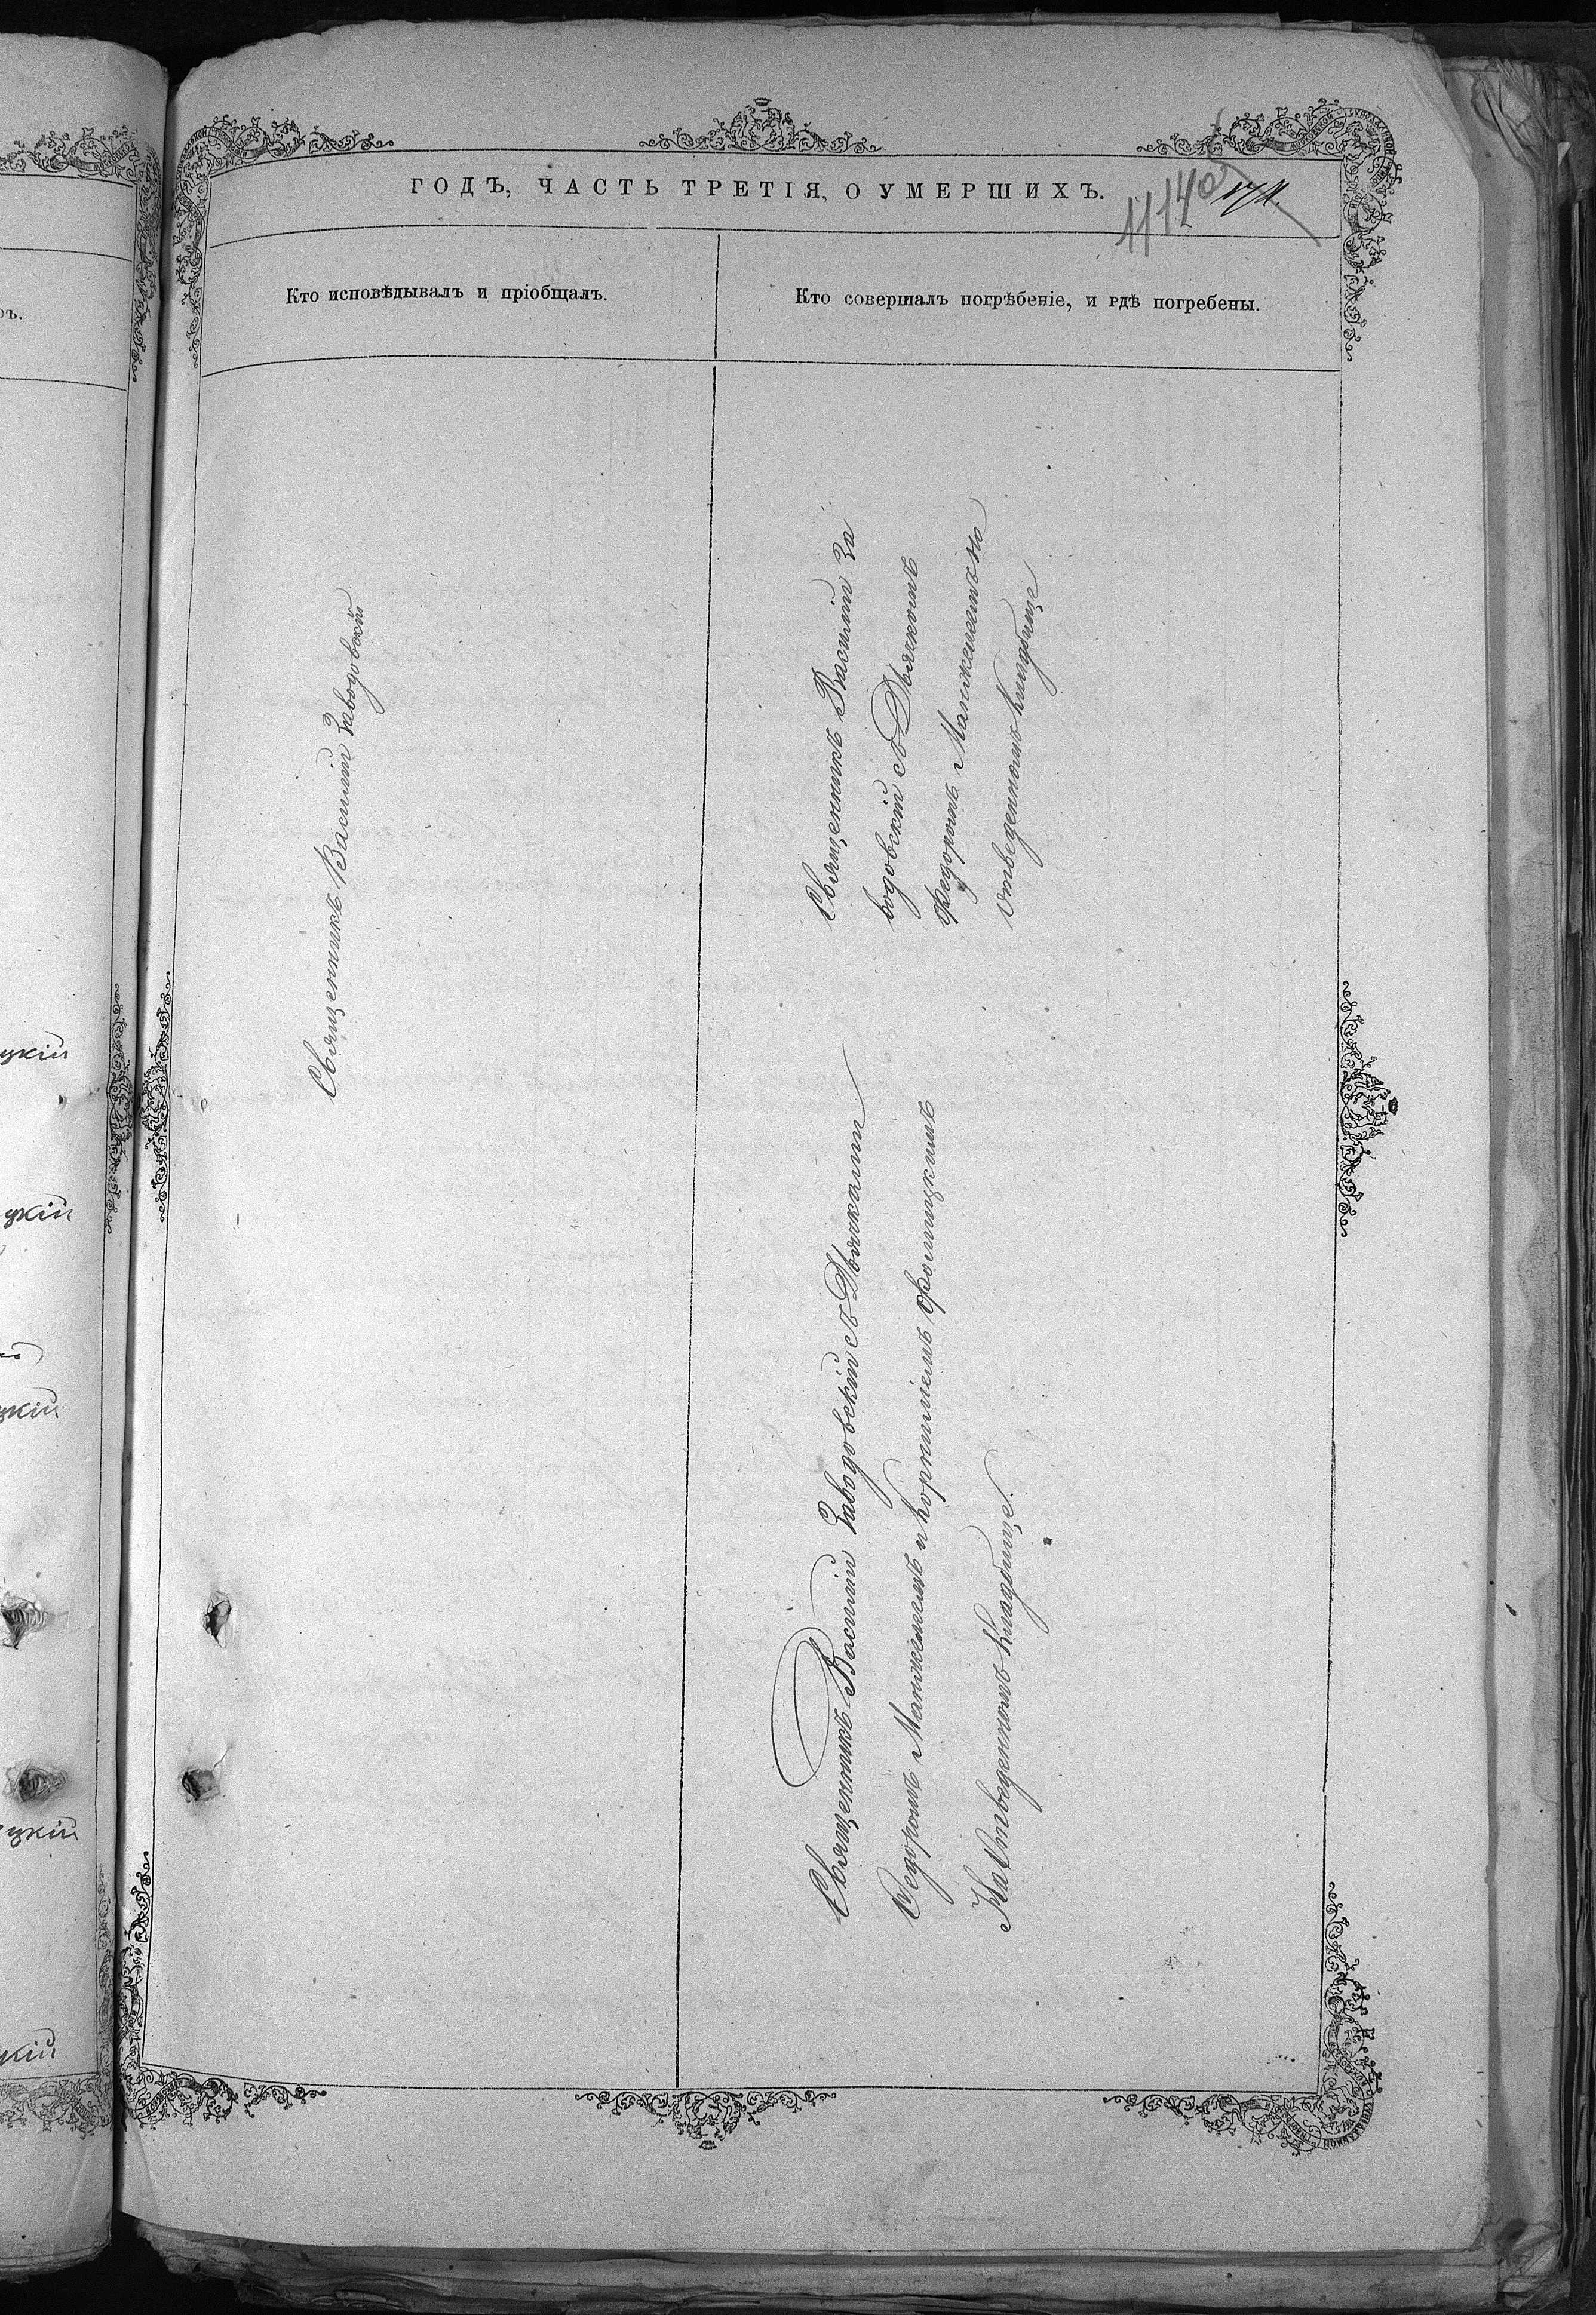 ГОДЪ, ЧАСТЬ ТРЕТІЯ, О УМЕРШИХЪ.
1114
171.
Кто исповѣдывалъ и пріобщалъ.
Кто совершалъ погрѣбеніе, и гдѣ погребены.
Священникъ Василій Заводовскій
Священникъ Василій За
водовскій съ Дьячкомъ
Федоромъ Манжелеемъ на
отведенномъ кладбище
Священникъ Василій Заводовскій съ Дьячками
Федоромъ Манжелеемъ и Корниліемъ Фомицкимъ
На Отведенномъ Кладбище.
цкій
цкій
цкій
цкій
кій